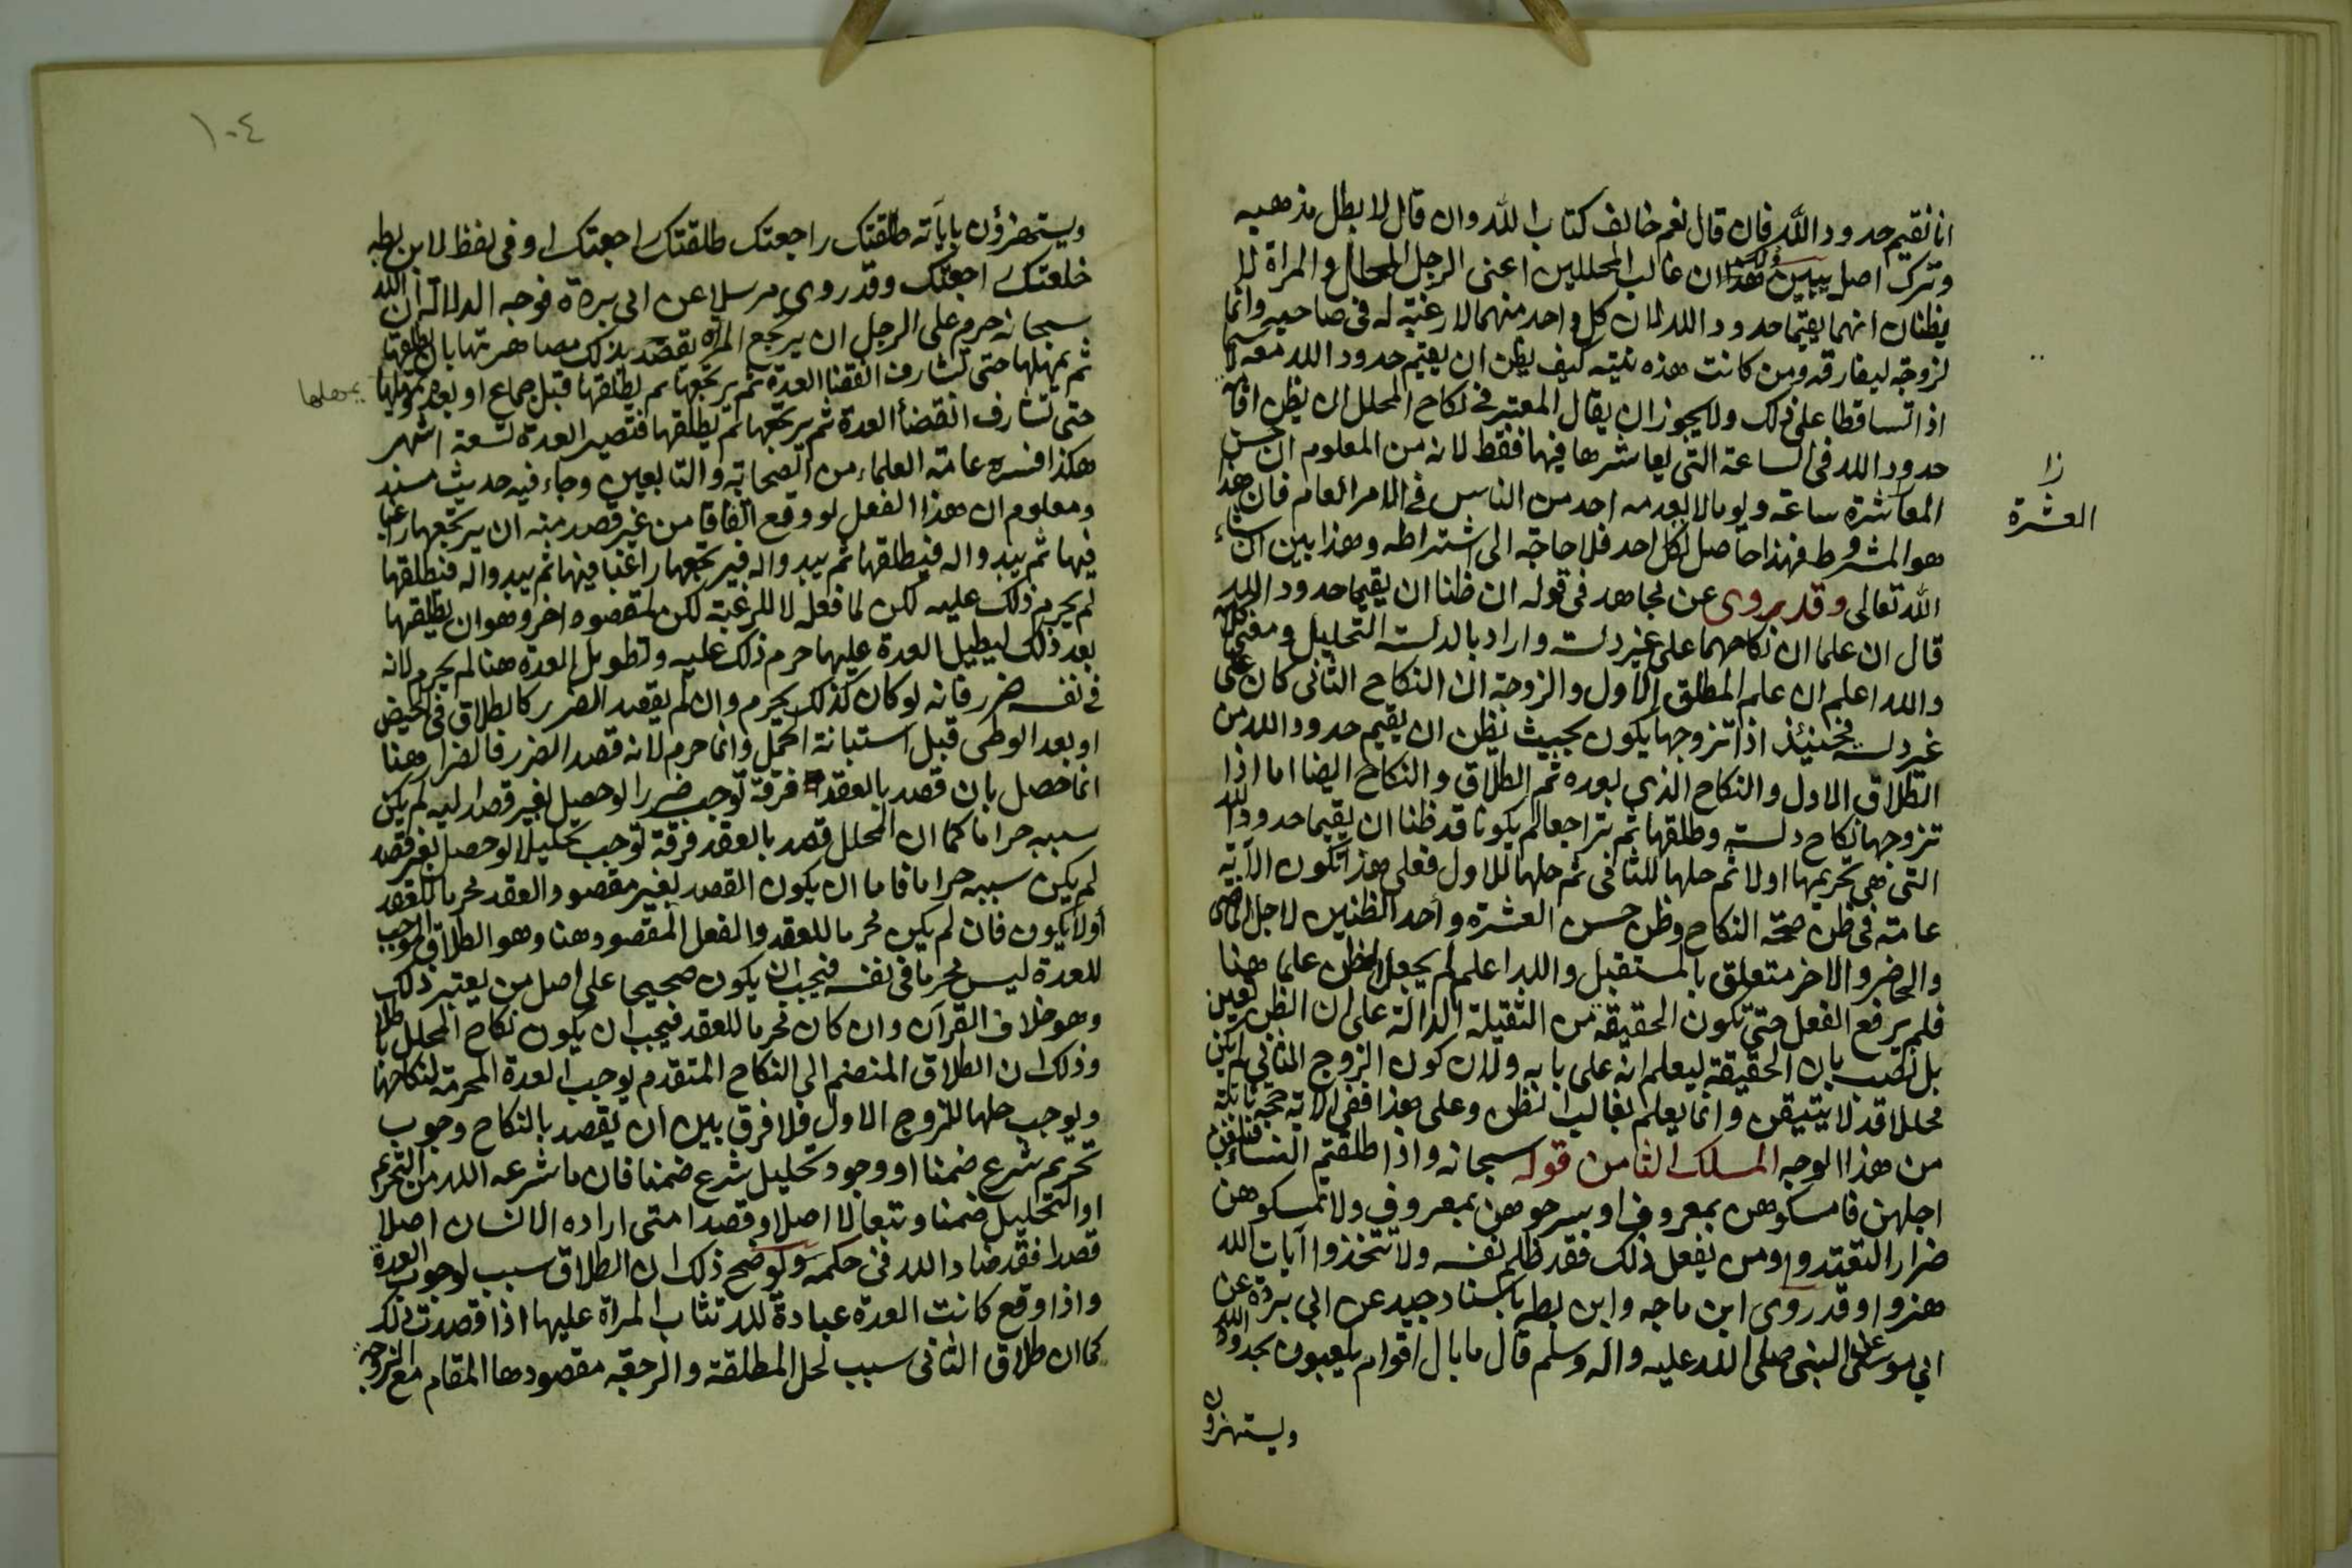 انا نقيم حدود الله فان قال نعم خالف كتاب الله وان قال لا بطل مذهبه
وترك اصل يبين هذا ان غالب المحللين اعنى الرجل المحلل والمراة لا
يظنان انهما يقيما حدود الله لان كل واحد منهما لا رغبة له فى صاحبه وانما
تزوجه ليفارقه ومن كانت هذه نيته كيف يظن ان يقيم حدود الله معه لا سيما
اذا تساقطا على ذلك ولا يجوز ان يقال المعتبر فى نكاح المحلل ان يظن اقامة
حدود الله فى الساعة التى يعاشرها فيها فقط لانه من المعلوم ان حسن
المعاشرة ساعة ويوما لا يعدمه احد من الناس فى الامر العام فان هذا
هو المشروط فهذا حاصل لكل احد فلا حاجة الى اشتراطه وهذا بين ان شاء
الله تعالى وقد يروى عن مجاهد فى قوله ان ظنا ان يقيما حدود الله
قال ان علما ان نكاحهما على غير دلسة واراد بالدلسة التحليل ومعنى كلامه
والله اعلم ان علم المطلق الاول والزوجة ان النكاح الثانى كان على
غير دلسة فحينئذ اذا تزوجها يكون بحيث يظن ان يقيم حدود الله من
الطلاق الاول والنكاح الذي بعده ثم الطلاق والنكاح ايضا اما اذا
تزوجها نكاح دلسة وطلقها ثم تراجعا لم يكونا قد ظنا ان يقيما حدود الله
التى هى تحريمها اولا ثم حلها للثانى ثم حلها للاول فعلى هذا تكون الآية
عامة فى ظن صحة النكاح وظن حسن العشرة واحد الظنين لاجل الماضى
والحاضر والاخر متعلق بالمستقبل والله اعلم لم يجعل الظن علما هنا
فلم يرفع الفعل حتى تكون الحقيقة من الثقيلة الدالة على ان الظن يقين
بل نصب بان الحقيقة ليعلم انه على بابه ولان كون الزوج الثانى لم يكن
محللا قد لا يتيقن وانما يعلم بغالب الظن وعلى هذا ففى الآية حجة ثانية
من هذا الوجه المسلك الثامن قوله سبحانه واذا طلقتم النساء فبلغن
اجلهن فامسكوهن بمعروف او سرحوهن بمعروف ولا تمسكوهن
ضرارا لتعتدوا ومن يفعل ذلك فقد ظلم نفسه ولا تتخذوا آيات الله
هزوا وقد روى ابن ماجه وابن بطه باسناد جيد عن ابى بردة عن
ابي موسى عن النبى صلى الله عليه واله وسلم قال ما بال اقوام يلعبون بحدود الله
ويستهزون
زا
العشرة
١٠٤
ويستهزؤن باياته طلقتك راجعتك طلقتك راجعتك وفى لفظ لابن بطه
خلعتك راجعتك وقد روى مرسلا عن ابى بردة فوجه الدلالة ان الله
سبحانه حرم على الرجل ان يرتجع المرأة يقصد بذلك مضاهرتها بان يطلقها
ثم يمهلها حتى تشارف انقضا العدة ثم يرتجعها ثم يطلقها قبل جماع او بعده ثم يمهلها
يمهلها
حتى تشارف انقضأ العدة ثم يرتجعها ثم يطلقها فتصير العدة تسعة اشهر
هكذا فسره عامة العلماء من الصحابة والتابعين وجاء فيه حديث مسند
ومعلوم ان هذا الفعل لو وقع اتفاقا من غير قصد منه ان يرتجعها راغبا
فيها ثم يبدو اله فيطلقها ثم يبدو اله فيرتجعها راغبا فيها ثم يبدو اله فيطلقها
لم يحرم ذلك عليه لكن لما فعله لا للرغبة لكن لمقصود اخر وهو ان يطلقها
بعد ذلك ليطيل العدة عليها حرم ذلك عليه وتطويل العدة هنا لم يحرم لانه
فى نفسه ضرر فانه لو كان كذلك يحرم وان لم يقصد الضرر كالطلاق فى الحيض
او بعد الوطى قبل استبانة الحمل وانما حرم لانه قصد الضرر فالضرار هنا
انما حصل بان قصد بالعقد فرقة توجب ضررا لو حصل بغير قصد اليه لم يكن
سببه حراما كما ان المحلل قصد بالعقد فرقة توجب تحليلا لو حصل بغير قصد
لم يكن سببه حراما فاما ان يكون القصد لغير مقصود العقد محرما للعقد
أولا يكون فان لم يكن محرما للعقد والفعل المقصود هنا وهو الطلاق الموجب
للعدة ليس محرما فى نفسه فيجب ان يكون صحيحا على اصل من يعتبر ذلك
وهو خلاف القرآن وان كان محرما للعقد فيجب ان يكون نكاح المحلل باطلا
وذلك ان الطلاق المنضم الى النكاح المتقدم يوجب العدة المحرمة لنكاحها
ويوجب حلها للزوج الاول فلا فرق بين ان يقصد بالنكاح وجوب
تحريم شرع ضمنا او وجود تحليل شرع ضمنا فان ما شرعه الله من التحريم
او التحليل ضمنا وتبعا لا اصلا وقصدا متى اراده الانسان اصلا
قصدا فقد ضاد الله فى حكمه ويوضح ذلك ان الطلاق سبب لوجوب العدة
واذا وقع كانت العدة عبادة لله تثاب المراة عليها اذا قصدت ذلك
كما ان طلاق الثانى سبب لحل المطلقة والرجعة مقصودها المقام مع الزوجة